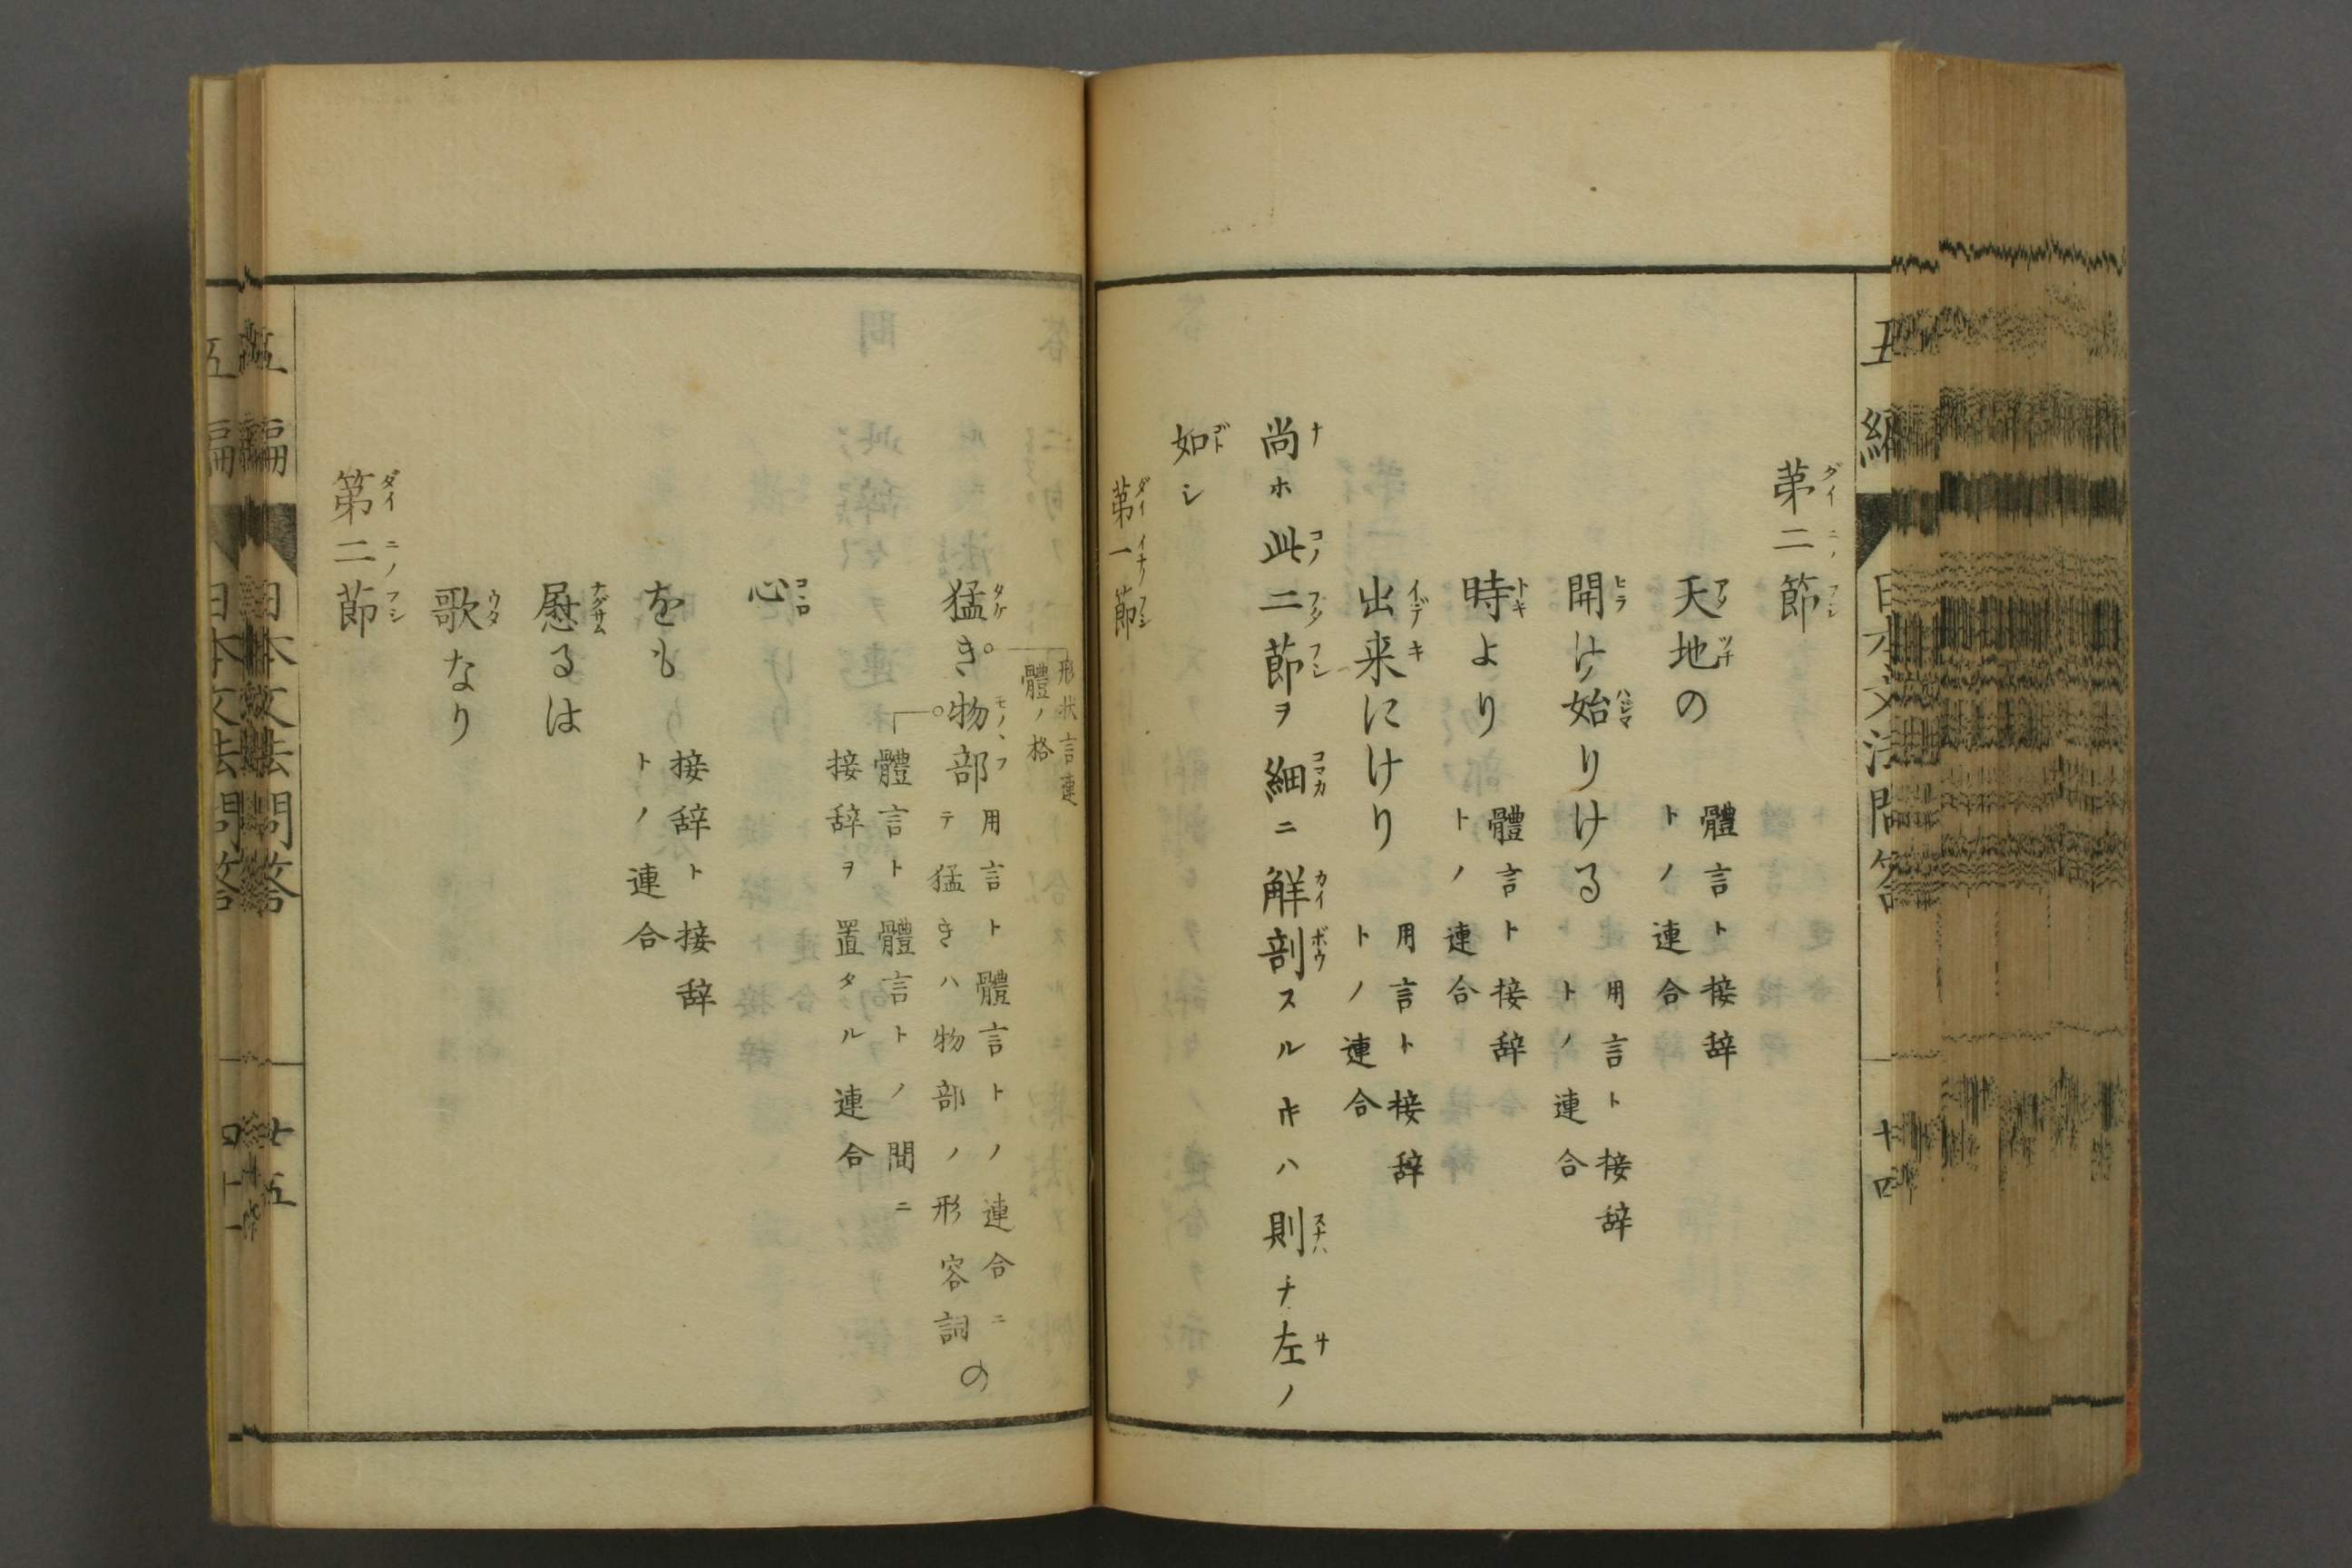 第二節
天地の
體言ト接辞
トノ連合
開け始りける
用言ト接辞
トノ連合
時より
體言ト接辞
トノ連合
出来にけり
用言ト接辞
トノ連合
尚ホ此二節ヲ細ニ解剖スルキハ則チ左ノ
如シ
第一節
形状言連
體ノ格
猛き物部
用言ト體言トノ連合ニ
テ猛きハ物部ノ形容詞
の
體言ト體言トノ間ニ
接辞ヲ置タル連合
心
をも
接辞ト接辞
トノ連合
慰るは
歌なり
第二節
五編 日本文法問答 十五